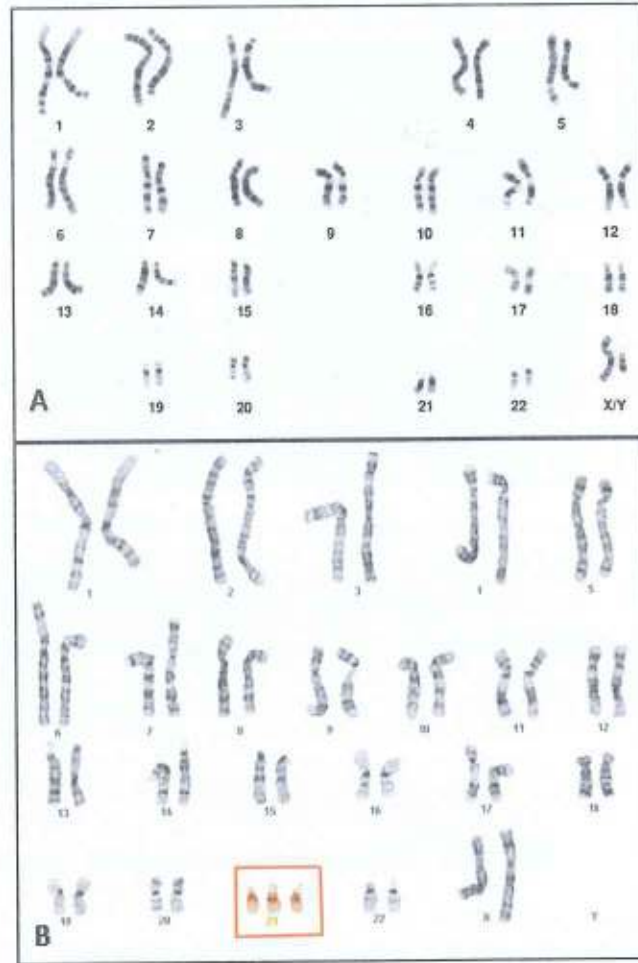 1 2 3 4 5
6 7 8 9 10 11 12
13 14 15 16 17 18
A 19 20 21 22 X/Y
1 2 3 4 5
6 7 8 9 10 11 12
13 14 15 16 17 18
B 19 20 21 22 X Y